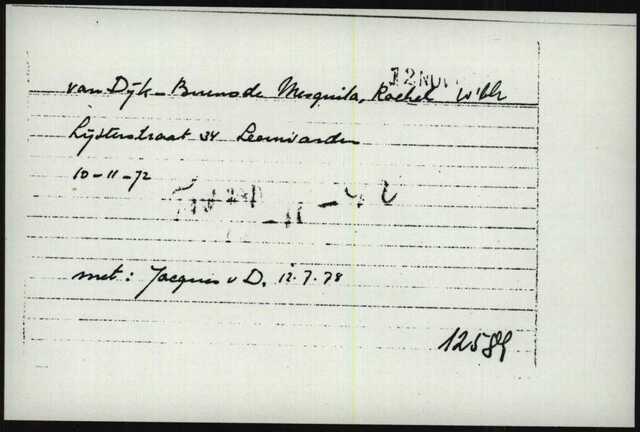 12 NOV
van Dijk - Bueno de Mesquita, Rachel
Lijsterstraat 34 Leeuwarden
10-11-72
-11-42
met: Jacques v D. 12.7.78
12589